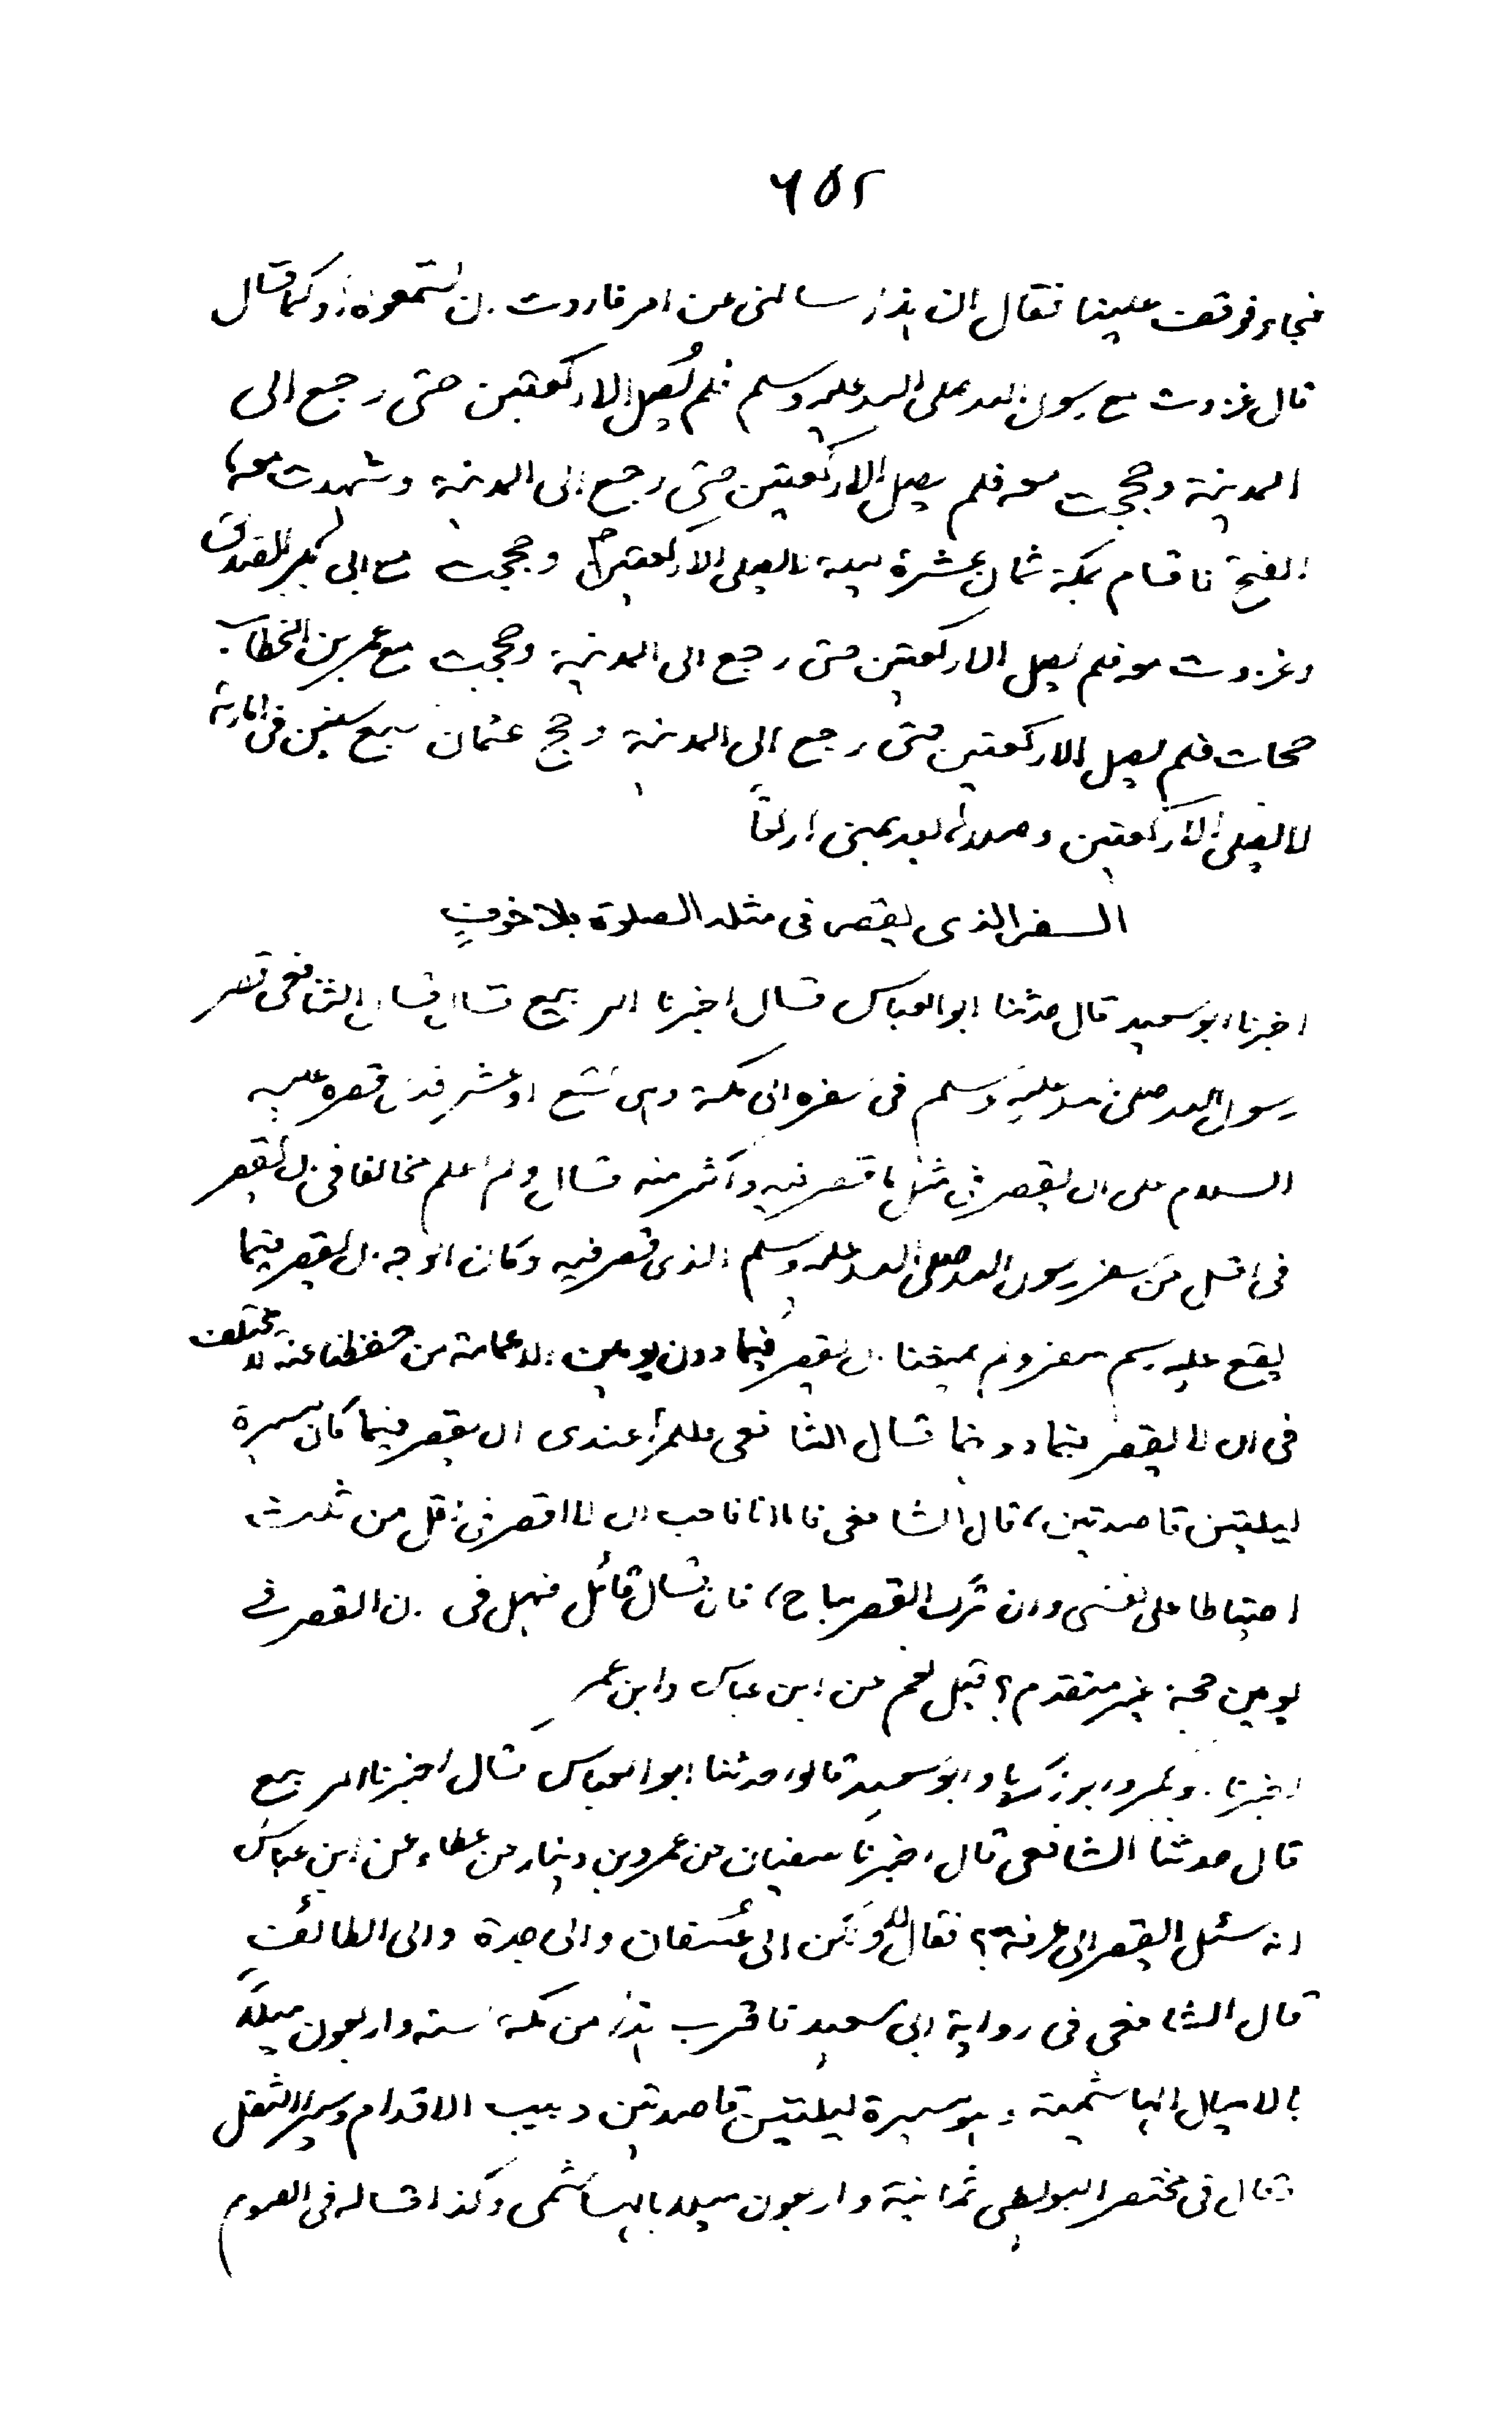 ٦٥٢
فجاء فوقف علينا فقال ان هذا سالنى عن امر فاردت ان تسمعوه او كما قال
قال غزوت مع رسول الله صلى الله عليه وسلم فلم يُصل الا ركعتين حتى رجع الى
المدينة وحججت معه فلم يصل الا ركعتين حتى رجع الى المدينة وشهدت معه
الفتح فاقام بمكة ثمان عشرة ليلة لا يصلى الا ركعتين وحججت مع ابى بكر الصديق
وغزوت معه فلم يصل الا ركعتين حتى رجع الى المدينة وحججت مع عمر بن الخطاب
حجات فلم يصل الا ركعتين حتى رجع الى المدينة وحج عثمان سبع سنين فى امارته
لا يصلى الا ركعتين وصلاها بعد بمنى اربعًا
السفر الذى يقصر فى مثله الصلوة بلا خوفٍ
اخبرنا ابو سعيد قال حدثنا ابو العباس قال اخبرنا الربيع قال قال الشافعى قصر
رسول الله صلى الله عليه وسلم فى سفره الى مكة وهى تسع او عشر فدل قصره عليه
السلام على ان يقصر فى مثل ما قصر فيه واكثر منه قال ولم اعلم مخالفا فى ان يقصر
فى اقل من سفر رسول الله صلى الله عليه وسلم الذى قصر فيه وكان الوجه ان يقصر فيما
يقع عليه اسم سفر ولم يبلغنا ان يقصر فيما دون يومين الا عامة من حفظنا عنه لا يختلف
فى ان لا يقصر فيما دونها قال الشافعى فللمرأ عندى ان يقصر فيما كان مسيرة
ليلتين قاصدتين، قال الشافعى فاما انا فاحب ان لا اقصر فى اقل من ثلاث
احتياطا على نفسى وان ترك القصر مباح، فان قال قائل فهل فى ان القصر فى
يومين حجة غير متقدم؟ قيل نعم عن ابن عباس وابن عمر
اخبرنا ابو بكر وابو زكريا وابو سعيد قالوا حدثنا ابو العباس قال اخبرنا الربيع
قال حدثنا الشافعى قال اخبرنا سفيان عن عمرو بن دينار عن عطاء عن ابن عباس
انه سئل القصر الى عرفة؟ فقال لا ولكن الى عُسفان والى جدة والى الطائف
قال الشافعى فى رواية ابى سعيد فاقرب هذا من مكة ستة واربعون ميلاً
بالاميال الهاشمية وهو مسيرة ليلتين قاصدتين دبيب الاقدام وسير الثقل
وقال فى مختصر البويطى ثمانية واربعون ميلا بالهاشمى وكذا قاله فى الصوم